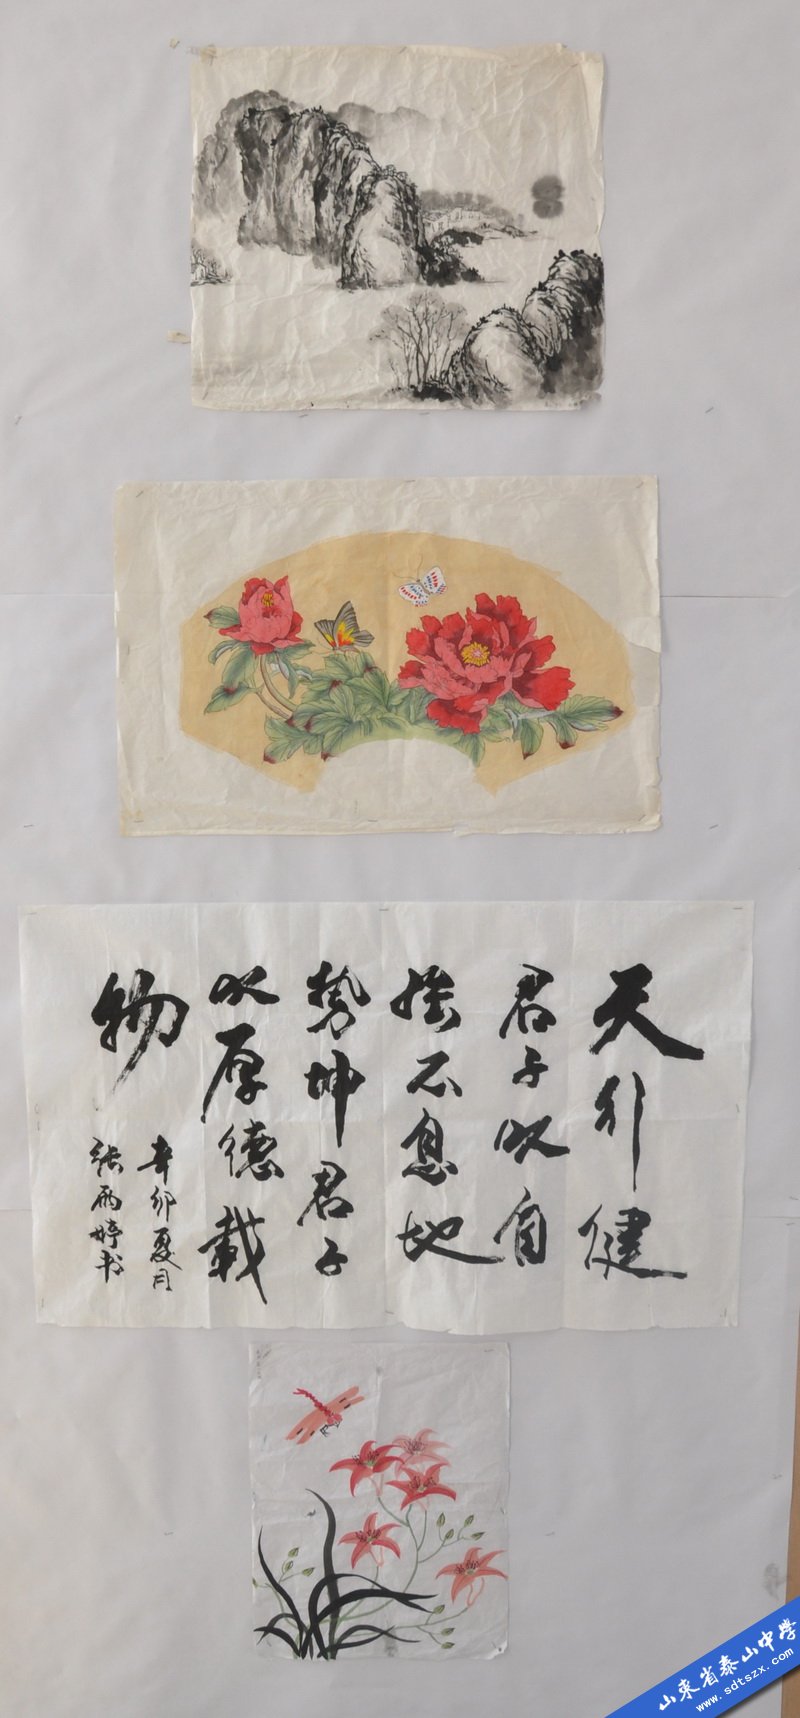 天行健
君子以自
强不息地
势坤君子
以厚德载
物
辛卯夏月
张雨婷书
山东省泰山中学
www.sdtszx.com